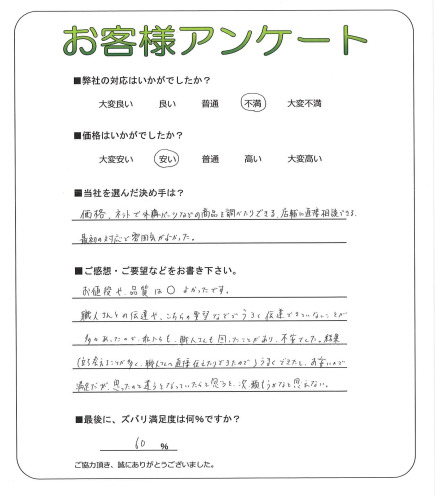 お客様アンケート
■弊社の対応はいかがでしたか？
大変良い 良い 普通 不満 大変不満
■価格はいかがでしたか？
大変安い 安い 普通 高い 大変高い
■当社を選んだ決め手は？
価格、ネットで外構パーツなどの商品を調べたりできる、店舗に直接相談できる
最初の対応で雰囲気がよかった。
■ご感想・ご要望などをお書き下さい。
お値段や、品質は○ よかったです。
職人さんとの伝達や、こちらの要望などでうまく伝達できていないことが
多々あったので、私たちも、職人さんも困ったことがあり、不安でした。結果
ことが多く、職人さんに直接伝えたりできたのでうまくできたし、お安いので
満足だが、思ったのと違うとなっていたらと思うと、次頼もうかなと思えない。
■最後に、ズバリ満足度は何%ですか？
60 %
ご協力頂き、誠にありがとうございました。